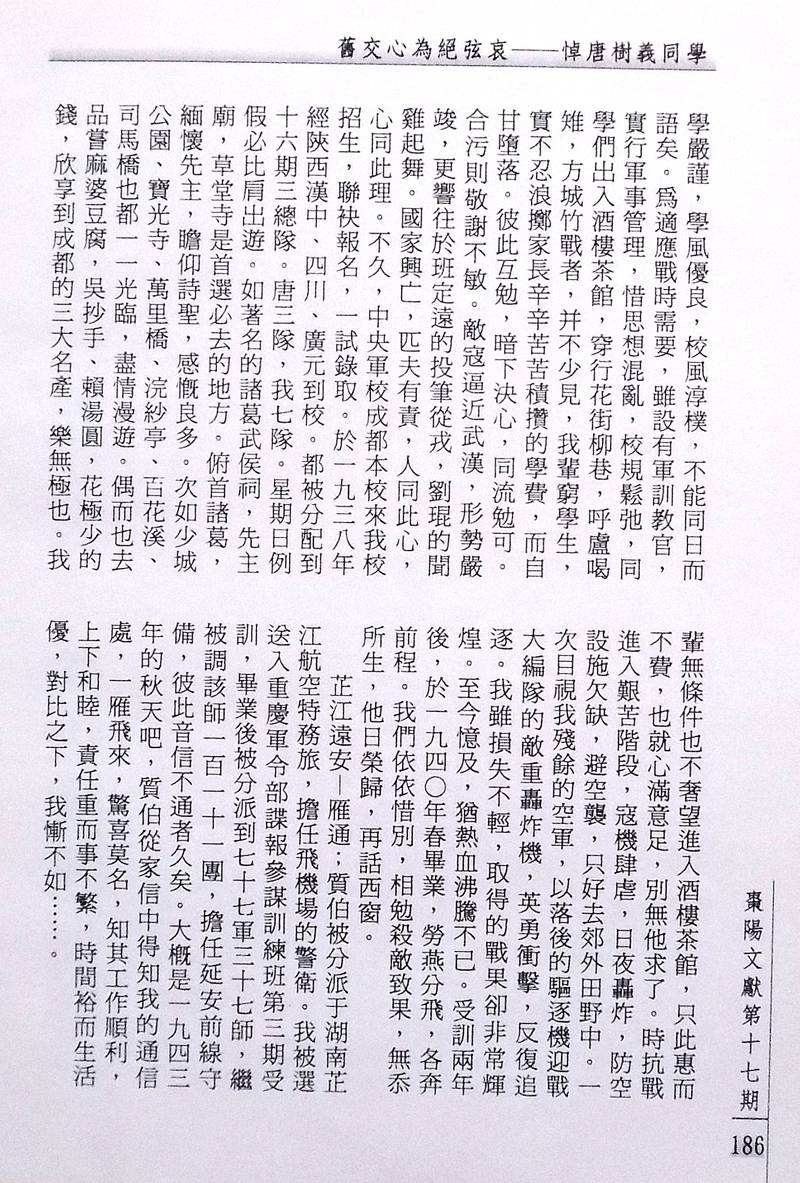 舊交心為絕弦哀——悼唐樹義同學
學嚴謹，學風優良，校風淳樸，不能同日而
語矣。爲適應戰時需要，雖設有軍訓教官，
實行軍事管理，惜思想混亂，校規鬆弛，同
學們出入酒樓茶館，穿行花街柳巷，呼盧喝
雉，方城竹戰者，并不少見，我輩窮學生，
實不忍浪擲家長辛辛苦苦積攢的學費，而自
甘墮落。彼此互勉，暗下決心，同流勉可。
合污則敬謝不敏。敵寇逼近武漢，形勢嚴
竣，更響往於班定遠的投筆從戎，劉琨的聞
雞起舞。國家興亡，匹夫有責，人同此心，
心同此理。不久，中央軍校成都本校來我校
招生，聯袂報名，一試錄取。於一九三八年
經陝西漢中、四川、廣元到校。都被分配到
十六期三總隊。唐三隊，我七隊。星期日例
假必比肩出遊。如著名的諸葛武侯祠，先主
廟，草堂寺是首選必去的地方。俯首諸葛，
緬懷先主，瞻仰詩聖，感慨良多。次如少城
公園、寶光寺、萬里橋、浣紗亭、百花溪、
司馬橋也都一一光臨，盡情漫遊。偶而也去
品嘗麻婆豆腐，吳抄手、賴湯圓，花極少的
錢，欣享到成都的三大名產，樂無極也。我
輩無條件也不奢望進入酒樓茶館，只此惠而
不費，也就心滿意足，別無他求了。時抗戰
進入艱苦階段，寇機肆虐，日夜轟炸，防空
設施欠缺，避空襲，只好去郊外田野中。一
次目視我殘餘的空軍，以落後的驅逐機迎戰
大編隊的敵重轟炸機，英勇衝擊，反復追
逐。我雖損失不輕，取得的戰果卻非常輝
煌。至今憶及，猶熱血沸騰不已。受訓兩年
後，於一九四〇年春畢業，勞燕分飛，各奔
前程。我們依依惜別，相勉殺敵致果，無忝
所生，他日榮歸，再話西窗。
芷江遠安—雁通；質伯被分派于湖南芷
江航空特務旅，擔任飛機場的警衛。我被選
送入重慶軍令部諜報參謀訓練班第三期受
訓，畢業後被分派到七十七軍三十七師，繼
被調該師一百一十一團，擔任延安前線守
備，彼此音信不通者久矣。大概是一九四三
年的秋天吧，質伯從家信中得知我的通信
處，一雁飛來，驚喜莫名，知其工作順利，
上下和睦，責任重而事不繁，時間裕而生活
優，對比之下，我慚不如……。
棗陽文獻第十七期
186